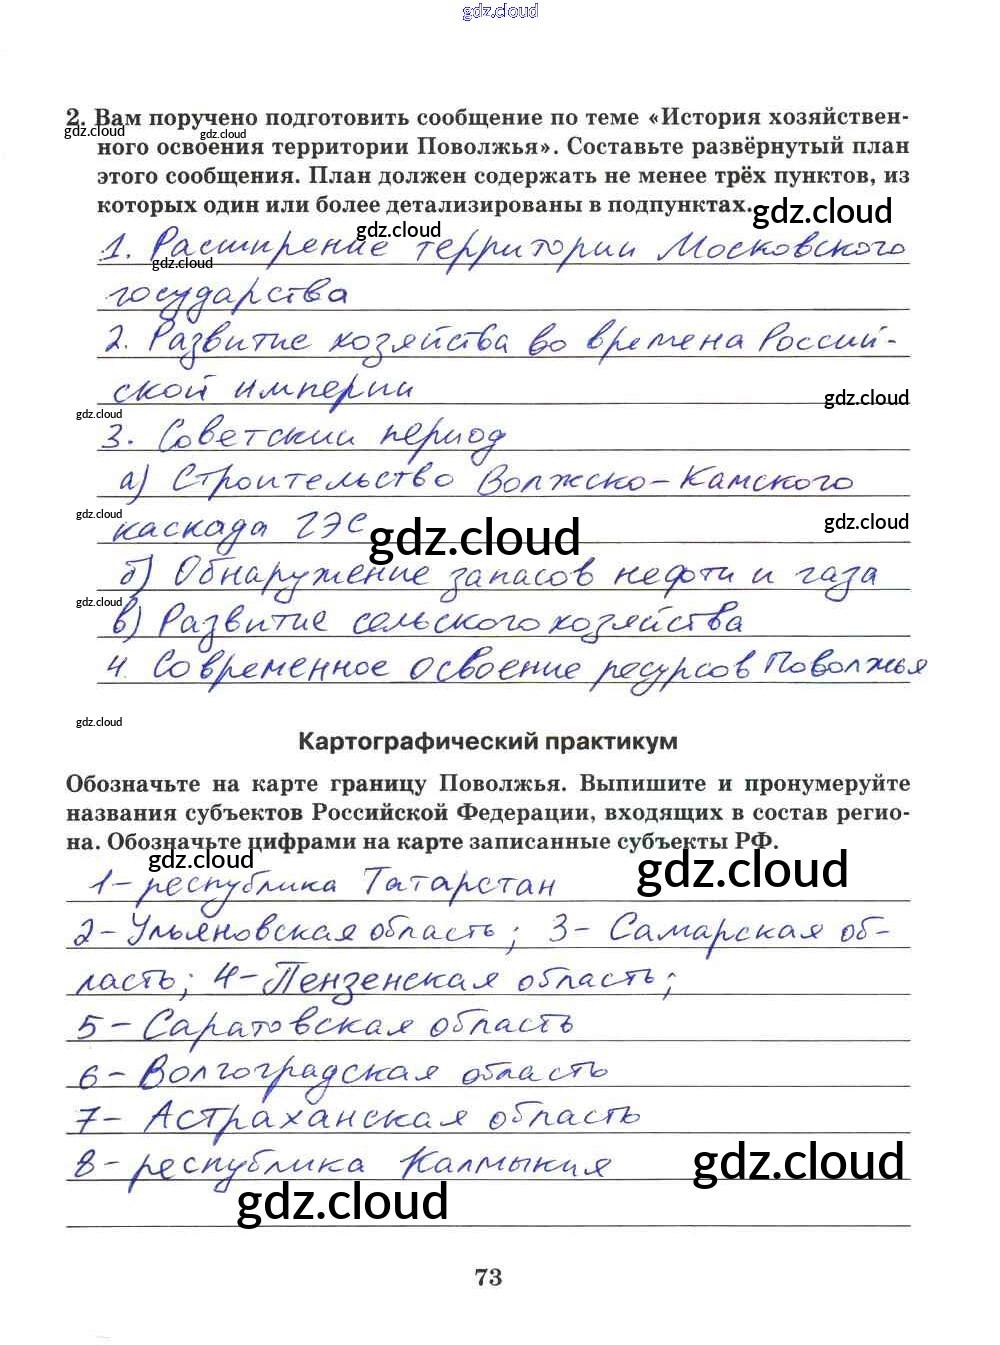 gdz.cloud
2. Вам поручено подготовить сообщение по теме «История хозяйствен-
gdz.cloud
gdz.cloud
ного освоения территории Поволжья». Составьте развёрнутый план
этого сообщения. План должен содержать не менее трёх пунктов, из
которых один или более детализированы в подпунктах.
gdz.cloud
gdz.cloud
1. Расширение территории Московского
gdz.cloud
государства
2. Развитие хозяйства во времена Россий-
ской империи
gdz.cloud
gdz.cloud
3. Советский период
а) Строительство Волжско-Камского
gdz.cloud
каскада ГЭС
gdz.cloud
gdz.cloud
б) Обнаружение запасов нефти и газа
gdz.cloud
в) Развитие сельского хозяйства
4. Современное освоение ресурсов Поволжья
gdz.cloud
Картографический практикум
Обозначьте на карте границу Поволжья. Выпишите и пронумеруйте
названия субъектов Российской Федерации, входящих в состав регио-
на. Обозначьте цифрами на карте записанные субъекты РФ.
gdz.cloud
gdz.cloud
1- республика Татарстан
2- Ульяновская область; 3- Самарская об-
ласть; 4- Пензенская область;
5- Саратовская область
6- Волгоградская область
7- Астраханская область
8- республика Калмыкия
gdz.cloud
gdz.cloud
73